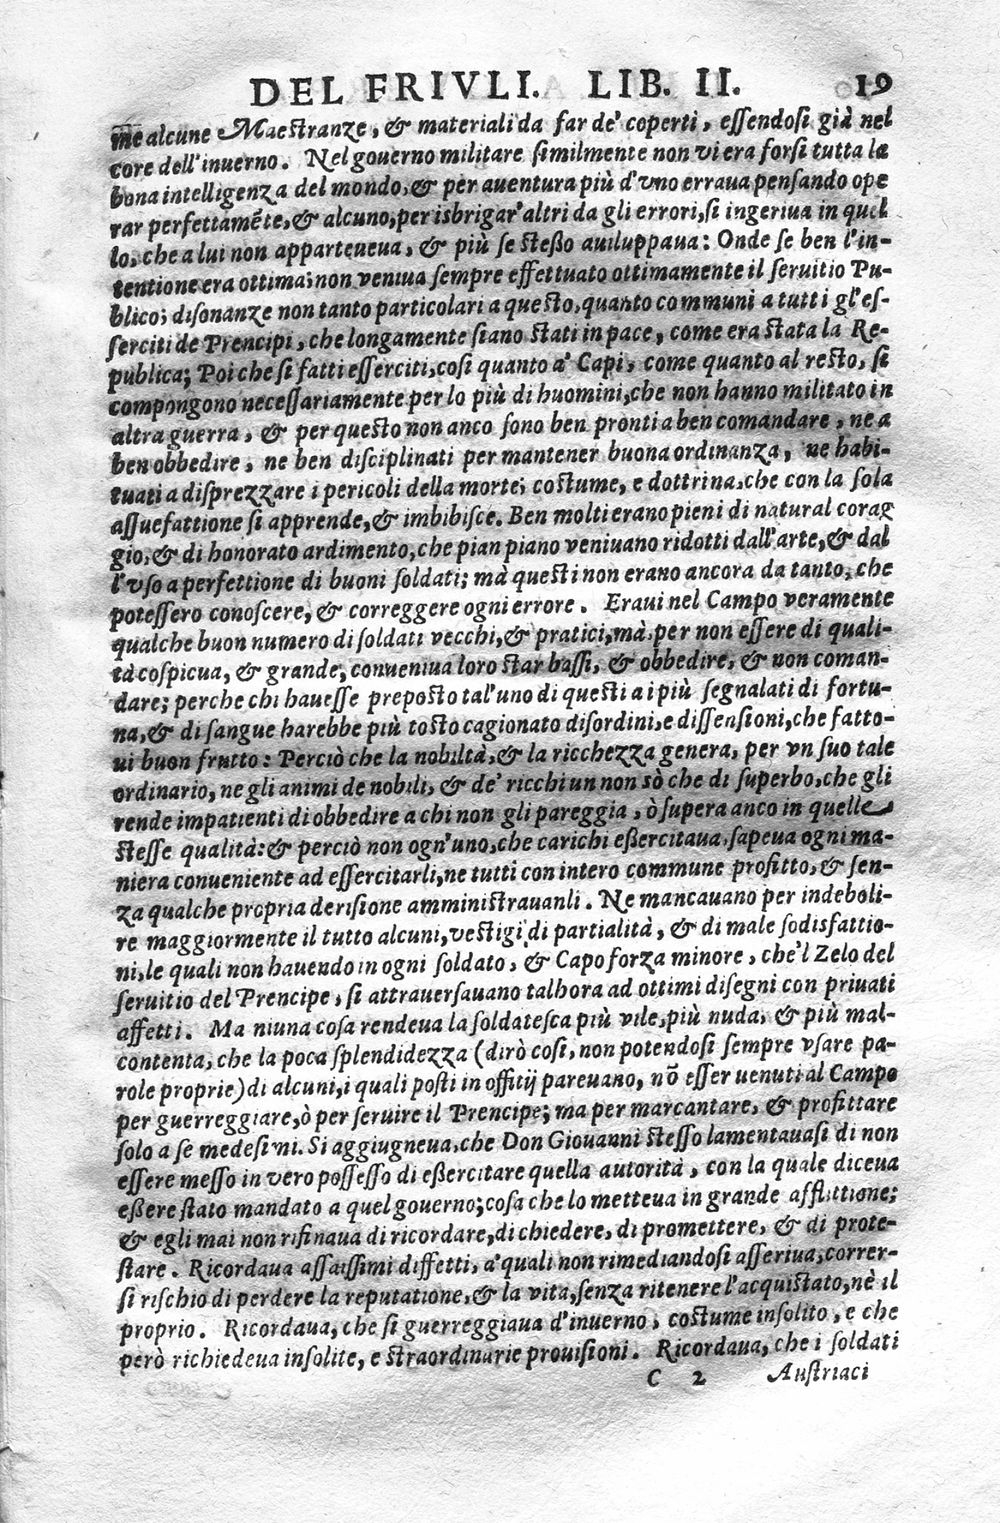 DEL FRIVLI. LIB. II. 19
me alcune Maestranze, & materiali da far de' coperti, essendosi già nel
core dell'inuerno. Nel gouerno militare similmente non vi era forsi tutta la
bona intelligenza del mondo, & per auentura più d'vno erraua pensando ope
rar perfettamẽte, & alcuno, per isbrigar' altri da gli errori, si ingeriua in quel
lo, che a lui non apparteueua, & più se stesso auiluppaua: Onde se ben l'in-
tentione era ottima; non veniua sempre effettuato ottimamente il seruitio Pu-
blico; disonanze non tanto particolari a questo, quanto communi a tutti gl'es-
serciti de Prencipi, che longamente siano stati in pace, come era stata la Re-
publica; Poiche si fatti esserciti, cosi quanto a' Capi, come quanto al resto, si
compongono necessariamente per lo più di huomini, che non hanno militato in
altra guerra, & per questo non anco sono ben pronti a ben comandare, ne a
ben obbedire, ne ben disciplinati per mantener buona ordinanza, ne habi-
tuati a disprezzare i pericoli della morte; costume, e dottrina, che con la sola
assuefattione si apprende, & imbibisce. Ben molti erano pieni di natural corag
gio, & di honorato ardimento, che pian piano veniuano ridotti dall'arte, & dal
l'vso a perfettione di buoni soldati; mà questi non erano ancora da tanto, che
potessero conoscere, & correggere ogni errore. Eraui nel Campo veramente
qualche buon numero di soldati vecchi, & pratici, mà, per non essere di quali-
tà cospicua, & grande, conueniua loro star bassi, & obbedire, & non coman-
dare; perche chi hauesse preposto tal'uno di questi a i più segnalati di fortu-
na, & di sangue harebbe più tosto cagionato disordini, e dissensioni, che fatto-
ui buon frutto: Perciò che la nobiltà, & la ricchezza genera, per vn suo tale
ordinario, ne gli animi de nobili, & de' ricchi un non sò che di superbo, che gli
rende impatienti di obbedire a chi non gli pareggia, ò supera anco in quelle
stesse qualità: & perciò non ogn'uno, che carichi essercitaua, sapeua ogni ma-
niera conueniente ad essercitarli, ne tutti con intero commune profitto, & sen-
za qualche propria derisione amministrauanli. Ne mancauano per indeboli-
re maggiormente il tutto alcuni, vestigi di partialità, & di male sodisfattio-
ni, le quali non hauendo in ogni soldato, & Capo forza minore, che'l Zelo del
seruitio del Prencipe, si attrauersauano talhora ad ottimi disegni con priuati
affetti. Ma niuna cosa rendeua la soldatesca più vile, più nuda, & più mal-
contenta, che la poca splendidezza (dirò cosi, non potendosi sempre vsare pa-
role proprie) di alcuni, i quali posti in offitij pareuano, nõ esser uenuti al Campo
per guerreggiare, ò per seruire il Prencipe; ma per marcantare, & profittare
solo a se medesimi. Si aggiugneua, che Don Giouanni stesso lamentauasi di non
essere messo in vero possesso di essercitare quella autorità, con la quale diceua
essere stato mandato a quel gouerno; cosa che lo metteua in grande afflittione;
& egli mai non rifinaua di ricordare, di chiedere, di promettere, & di prote-
stare. Ricordaua assaissimi diffetti, a' quali non rimediandosi asseriua, correr-
si rischio di perdere la reputatione, & la vita, senza ritenere l'acquistato, nè il
proprio. Ricordaua, che si guerreggiaua d'inuerno, costume insolito, e che
però richiedeua insolite, e straordinarie prouisioni. Ricordaua, che i soldati
C 2 Austriaci